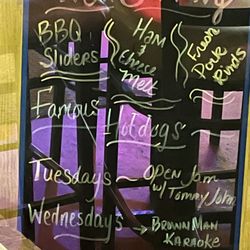 BBQ
Sliders
HAM
&
Cheese
Melt
Fresh
Pork
Rinds
Famous
Hotdogs
Tuesdays → OPEN Jam
w/ Tommy John
Wednesdays → BROWN MAN
KARAOKE